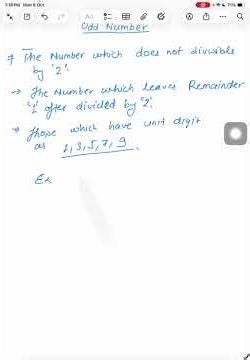 Odd Number
→ The Number which does not divisible
by '2'.
→ The Number which leaves Remainder
'1' after divided by '2'.
→ Those which have unit digit
as 1,3,5,7,9.
Ex